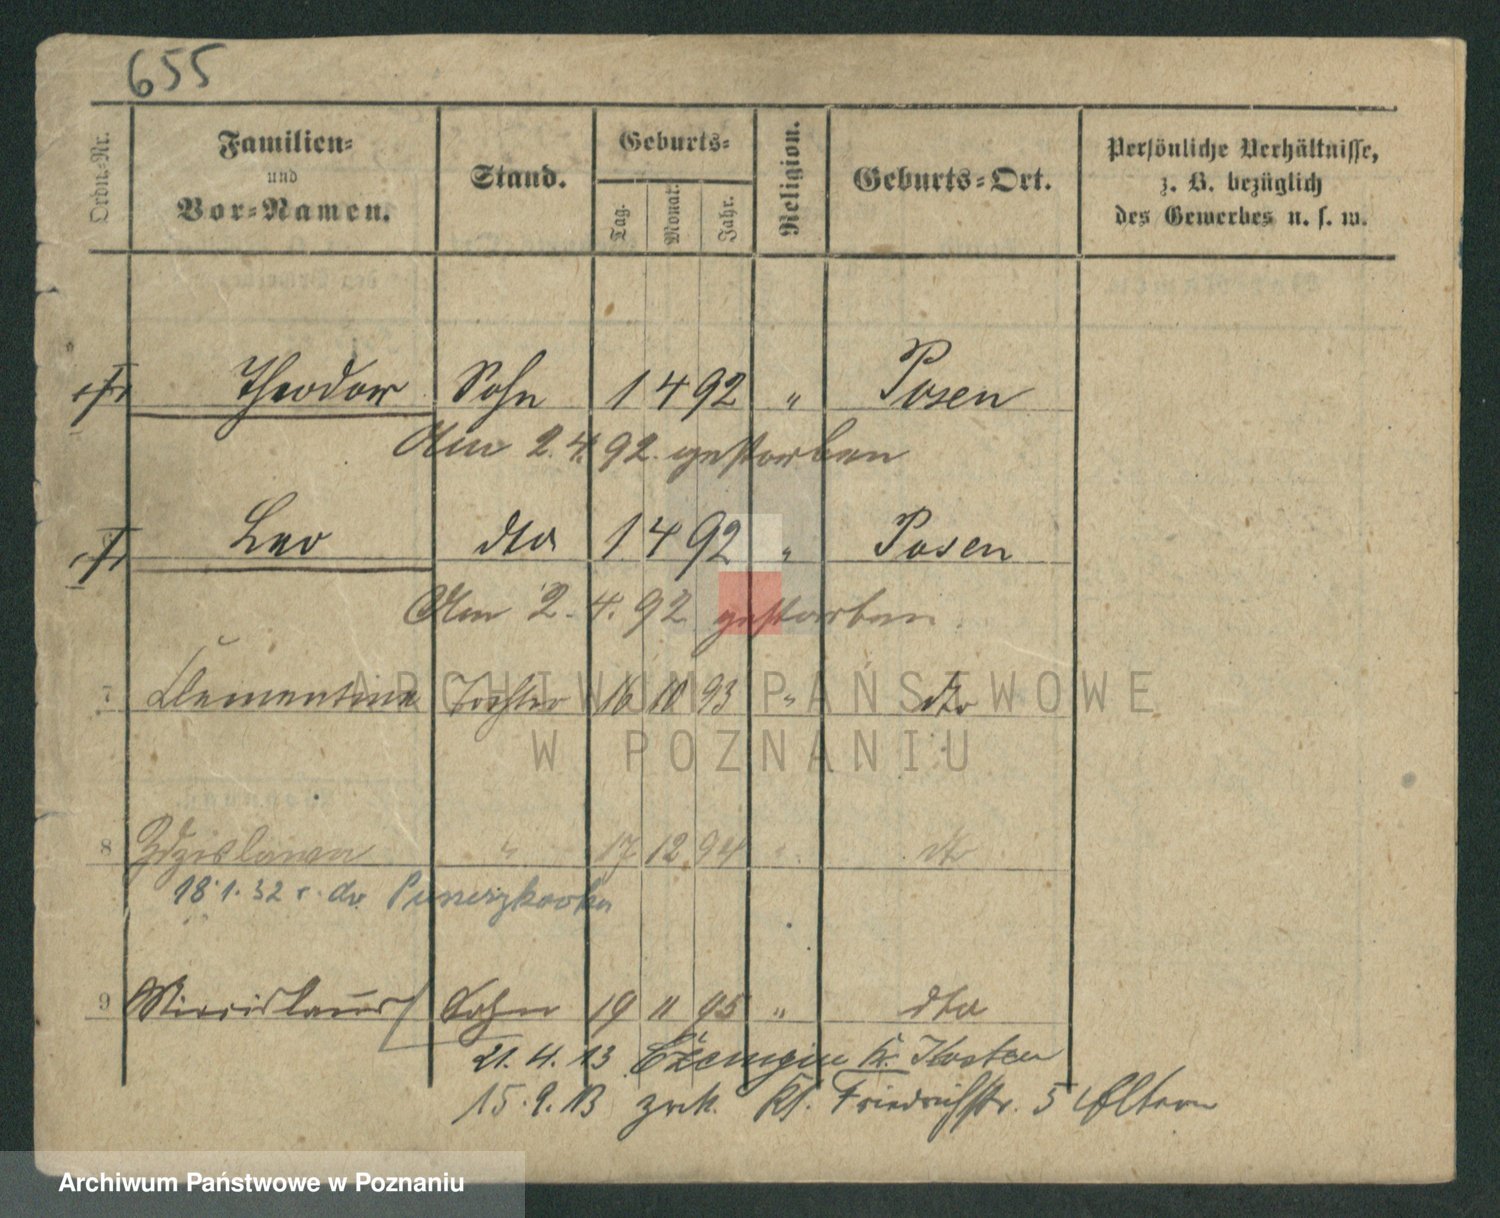 655
Ordn.-Nr.
Familien-
und
Vor-Namen.
Stand.
Geburts-
Tag.
Monat.
Jahr.
Religion.
Geburts-Ort.
Persönliche Verhältnisse,
z. B. bezüglich
des Gewerbes u. s. w.
Theodor Sohn 1 4 92 " Posen
Am 2.4.92. gestorben
Leo dto 1 4 92 " Posen
Am 2.4.92 gestorben.
7 Clementine Tochter 16 10 93 " dto
ARCHIWUM PAŃSTWOWE
W POZNANIU
8 Zdzislawa " 17 12 94 dto
18.1.32 r. do
9 Miecislaus Sohn 19 11 95 " dto
21.4.13 Kr. Kosten
15.9.13 zrk. Kl. Friedrichstr. 5 Eltern
Archiwum Państwowe w Poznaniu